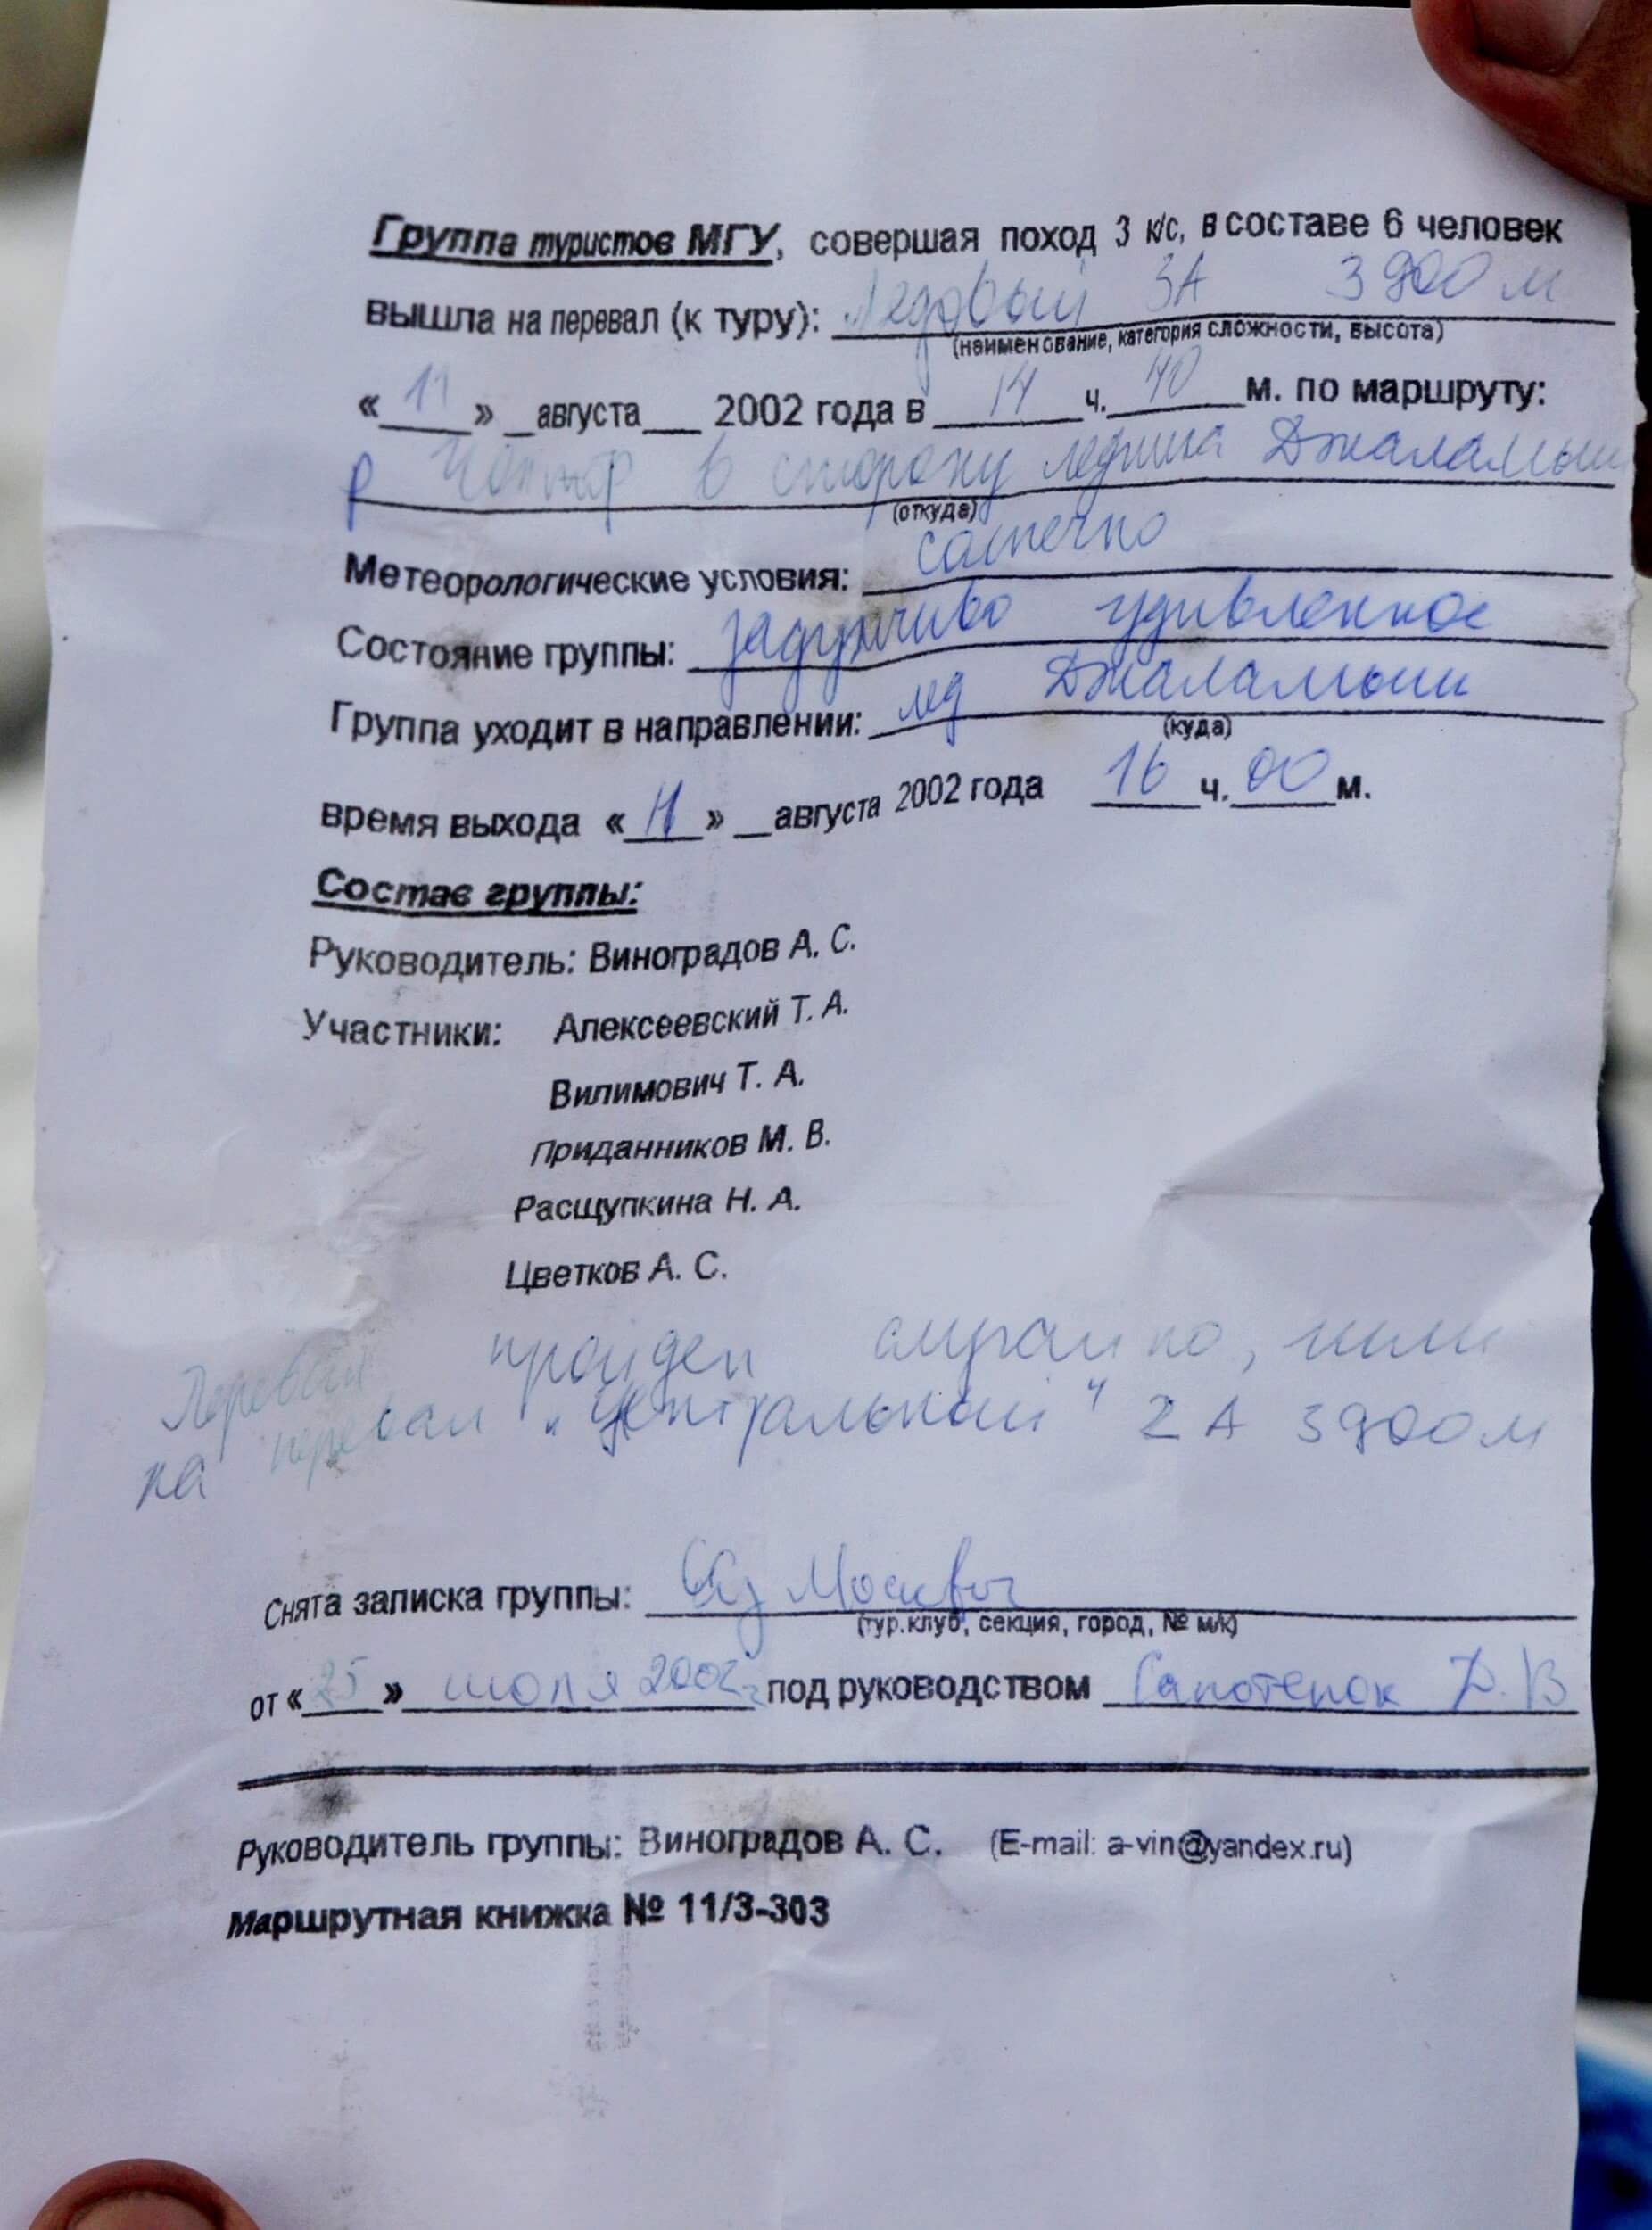 Группа туристов МГУ, совершая поход 3 к/с, в составе 6 человек
вышла на перевал (к туру): Ледовый 3А 3900 м
(наименование, категория сложности, высота)
« 11 » _августа___ 2002 года в 14 ч. 40 м. по маршруту:
р в сторону ледника Джаламыш
(откуда)
Метеорологические условия: солнечно
Состояние группы: задумчиво удивленное
Группа уходит в направлении: лед Джаламыш
(куда)
время выхода « 11 » _августа 2002 года 16 ч. 00 м.
Состав группы:
Руководитель: Виноградов А. С.
Участники: Алексеевский Т. А.
Вилимович Т. А.
Приданников М. В.
Расщупкина Н. А.
Цветков А. С.
Перевал пройден случайно, шли
на перевал "Центральный" 2А 3900м
Снята записка группы: Москвич
(тур.клуб, секция, город, № м/к)
от « 25 » июля 2002г. под руководством Сапотенок Д. В
Руководитель группы: Виноградов А. С. (E-mail: a-vin@yandex.ru)
Маршрутная книжка № 11/3-303